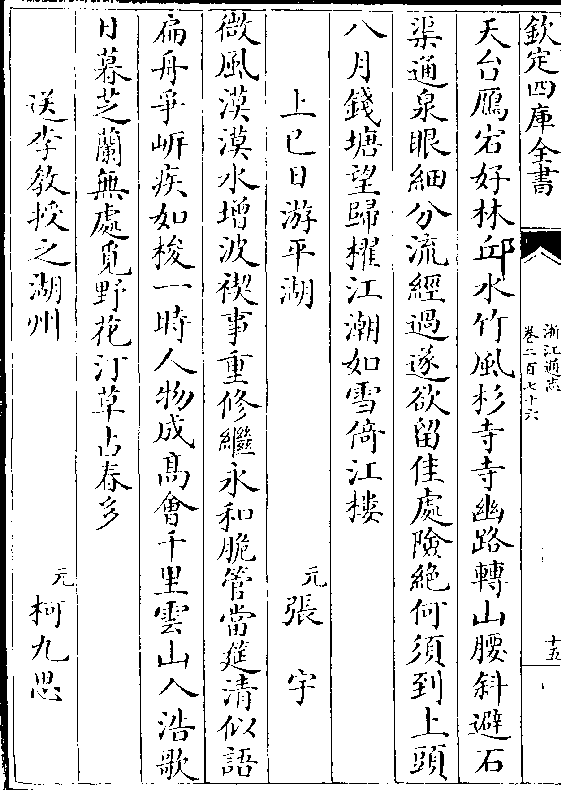 欽定四庫全書
浙江通志
卷二百七十六
十五
天台鴈宕好林邱水竹風杉寺寺幽路轉山腰斜避石
渠通泉眼細分流經過遂欲留佳處險絶何須到上頭
八月錢塘望歸櫂江潮如雪倚江樓
上巳日游平湖
元張宇
微風漠漠水增波禊事重修繼永和脆管當筵清似語
扁舟爭岓疾如梭一時人物成髙會千里雲山入浩歌
日暮芝蘭無處覓野花汀草占春多
送李教授之湖州
元柯九思